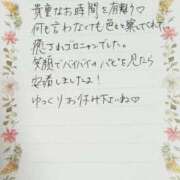 貴重なお時間を有難う♡
何も言わなくても色々察してくれて、
癒されゴロニャンでした。
笑顔でバイバイのハピを見たら
安心しましたよ!
ゆっくりお休み下さいね♡